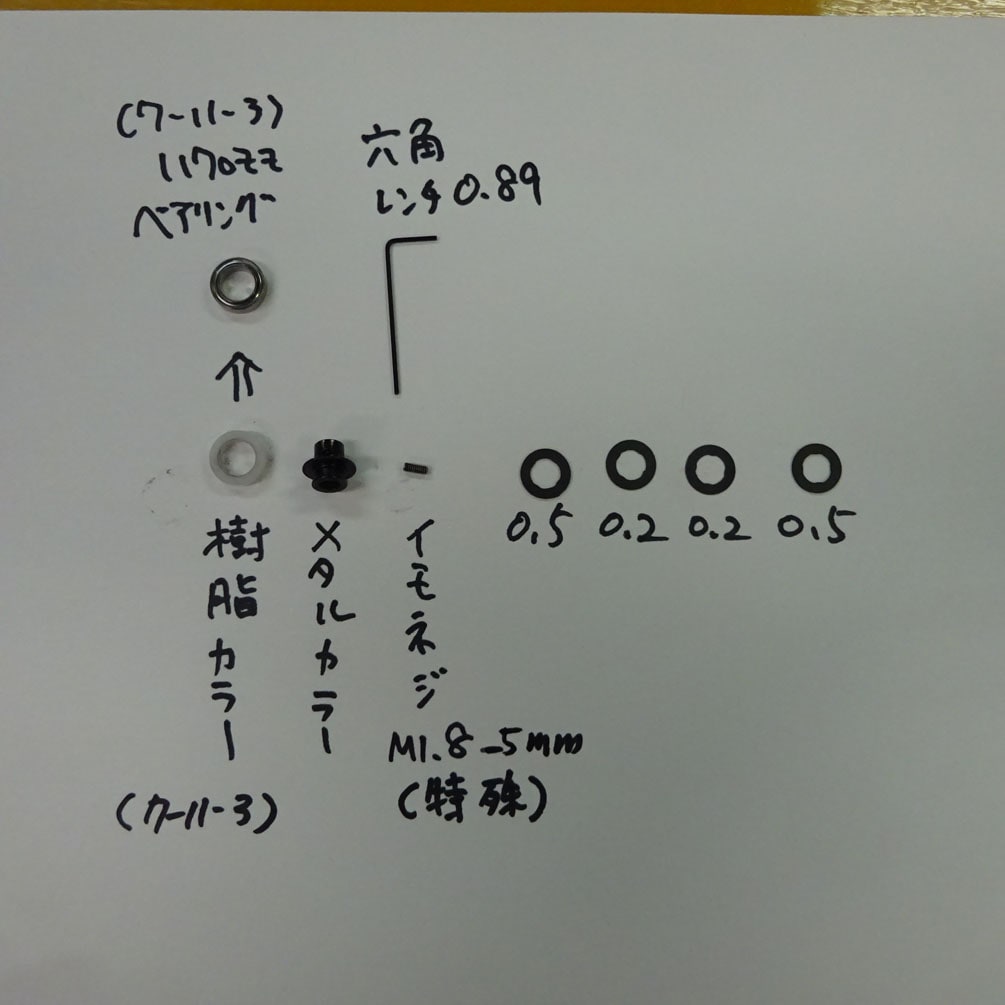 (7-11-3)
1170ZZ
ベアリング
六角
レンチ0.89
0.5 0.2 0.2 0.5
樹脂カラー
(7-11-3)
メタルカラー
イモネジ
M1.8-5mm
(特殊)